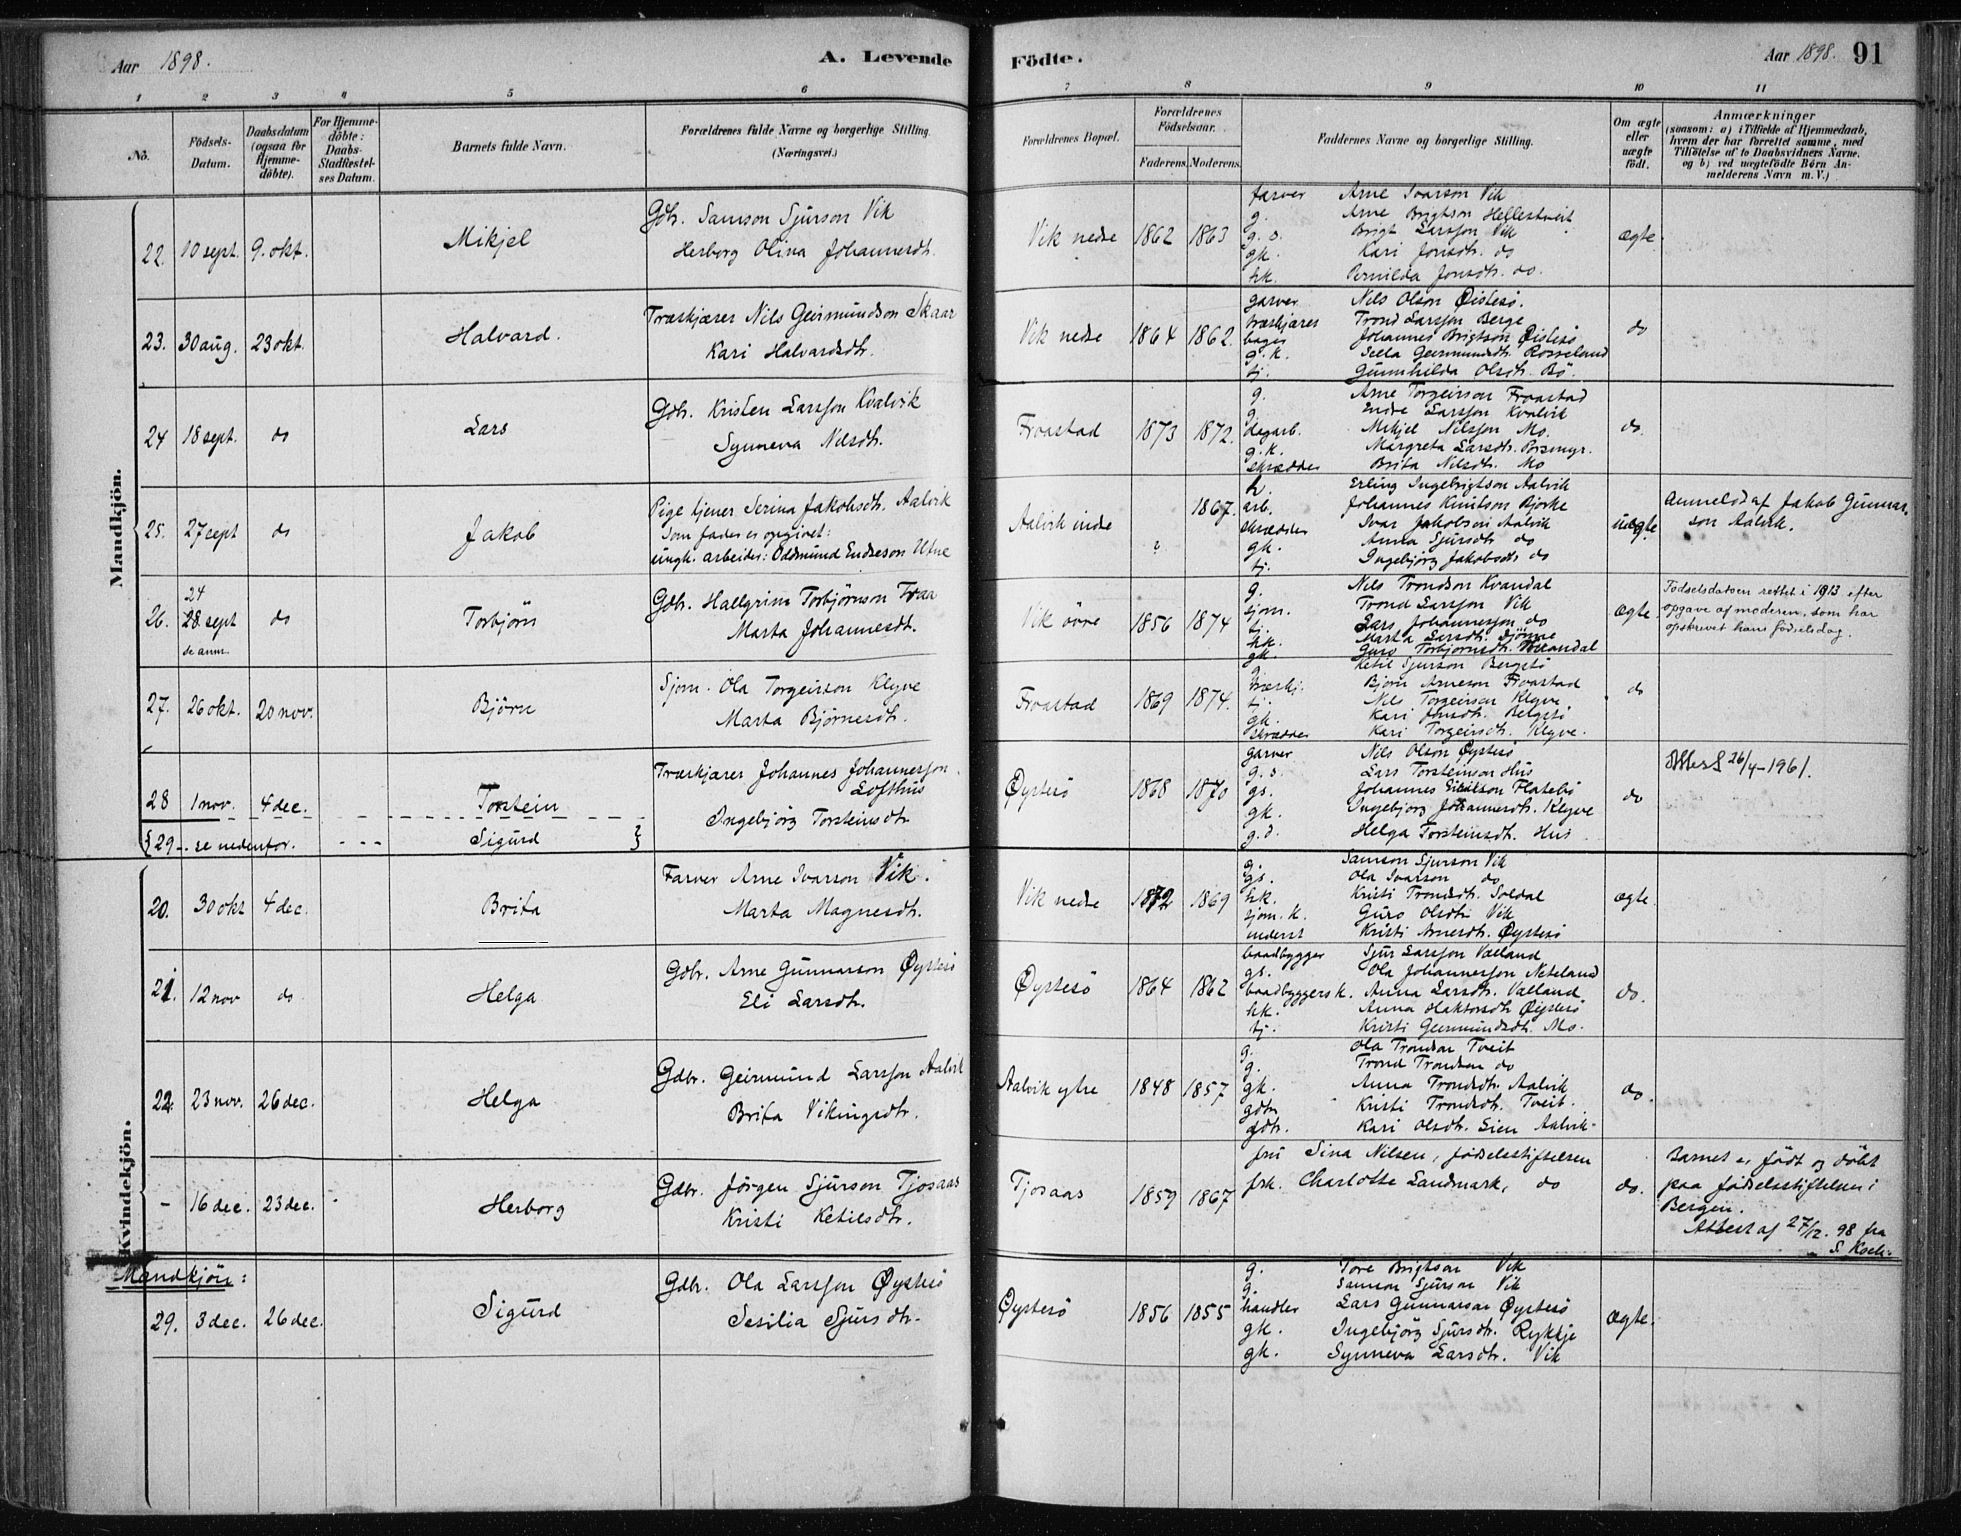 Aar 1898.
A. Levende
Födte.
Aar 1898. 91
1 2 3 4 5 6 7 8 9 10 11
No.
Födsels-
Datum.
Daabsdatum
(ogsaa for
Hjemme-
döbte).
For Hjemme-
döbte:
Daabs-
Stadfæstel-
ses Datum.
Barnets fulde Navn.
Forældrenes fulde Navne og borgerlige Stilling.
(Næringsvei.)
Forældrenes Bopæl.
Forældrenes
Födselsaar.
Faderens. Moderens.
Faddernes Navne og borgerlige Stilling.
Om ægte
eller
uægte
födt.
Anmærkninger
(saasom: a) i Tilfælde af Hjemmedaab,
hvem der har forrettet samme, med
Tilföielse af to Daabsvidners Navne,
og b) ved uægtefödte Börn An-
melderens Navn m. V.)
Mandkjön.
22. 10 sept. 9. okt. Mikjel
Gbr. Samson Sjurson Vik
Herborg Olina Johannesdtr.
Vik nedre 1862 1863
farver Arne Ivarson Vik
g. Arne Brigtson Hellestveit
g. s. Brigt Larsson Vik
gk. Kari Jonsdtr. do
hk. Pernilda Jonsdtr. do.
ægte.
23. 30 aug. 23 okt. Halvard.
Træskjærer Nils Geirmundson Skaar
Kari Halvardsdtr.
Vik nedre 1864 1862.
garver Nils Olson Øistesö.
træskjærer Trond Larsson Berge
bager Johannes Brigtson Øistesö
g. k. Sella Geirmundsdtr. Rosseland
tj. Gunnhilda Olsdtr. Bö.
do
24 18 sept. do Lars
Gbr. Kristen Larsson Kvalvik
Synneva Nilsdtr.
Froastad 1873 1872.
g. Arne Torgeirson Froastad
g. Endre Larsson Kvalvik
dagarb. Mikjel Nilsson Mo.
g. k. Margreta Larsdtr. Porsmyr.
skrædder Brita Nilsdtr. Mo
do.
25. 27 sept do Jakob
Pige tjener Serina Jakobsdtr. Aalvik
Som fader er opgivet:
ungk. arbeider: Oddmund Endreson Utne
Aalvik indre ? 1867.
h. Erling Ingebrigtson Aalvik
arb. Johannes Knutson Bjorke
skrædder Ivar Jakobson Aalvik
gk. Anna Sjursdtr do
tj. Ingebjörg Jakobsdtr do
uægte
Anmeldt af Jakob Gunnar-
son Aalvik.
24
26. 28 sept do Torbjörn
se anm.
Gbr. Hallgrim Torbjörnson Froa
Marta Johannesdt.
Vik övre 1856 1874
g. Nils Trondson Kvandal
sjom. Trond Larsson Vik
tj. Lars Johannesson do
hk. Marta Larsdtr. Djönne
gk. Guro Torbjörnsdtr.
ægte.
Fødselsdatoen rettet i 1913 efter
opgave af moderen, som har
opskrevet hans fødselsdag.
27. 26 okt. 20 nov. Björn
Sjom. Ola Torgeirson Klyve
Marta Björnesdtr.
Froastad 1869 1874.
g. Ketil Sjurson Bergstö
træskj. Bjorn Arneson Froastad
tj. Nils Torgeirson Klyve
gk. Kari Jonsdtr. Belgstö
skrædder Kari Torgeirsdtr. Klyve.
do
28 1 nov. 4 dec. Torstein
Træskjærer Johannes Johannesson
Lofthus
Ingebjörg Torsteinsdtr
Øystesö 1868 1870
garver Nils Olson Øystesö
g. s. Lars Torsteinson Hus
gs. Johannes Flatebö
gk. Ingebjörg Johannesdtr. Klyve
g. d. Helga Torsteinsdtr. Hus
do
26/4-1961.
29 - se nedenfor. Sigurd
Kvindekjön.
20. 30 okt 4 dec. Brita
Farver Arne Ivarson Vik.
Marta Magnesdtr.
Vik nedre 1872 1869
g. Samson Sjurson Vik
gs. Ola Ivarson do
hk. Kristi Trondsdtr. Soldal
sjom. k. Guro Olsdtr Vik
inderst Kristi Arnesdtr. Øystesö
ægte.
21. 12 nov do Helga
Gbr. Arne Gunnarson Øystesö
Eli Larsdtr.
Øystesö 1864 1862
baadbygger Sjur Larsson Vælland
gs. Ola Johannesson Neteland
baadbyggersk. Anna Larsdtr. Vælland
hk. Anna Haktorsdtr Øistesö
tj. Kristi Geirmundsdtr. Mo.
do.
22. 23 nov. 26 dec. Helga
Gdbr. Geirmund Larsson Aalvik
Brita Vikingsdtr.
Aalvik ytre 1848 1857
g. Ola Trondson Tveit
g. Trond Trondson do
gk. Anna Trondsdtr. Aalvik
gdtr Kristi Trondsdtr. Tveit.
gdtr. Kari Olsdtr. Lien Aalvik.
do.
- 16 dec. 23 dec. Herborg
Gdbr. Jörgen Sjurson Tjosaas
Kristi Ketilsdtr.
Tjosaas 1859 1867
fru Sina Nilsen, fødselsstiftelsen
frk. Charlotte Landmark, do
do.
Barnet er født og döbt
paa fødselsstiftelsen i
Bergen.
Attest af 27/12. 98 fra
S. Koch.
Mandkjön:
29. 3 dec. 26 dec. Sigurd
Gdbr. Ola Larsson Øystesö
Sesilia Sjursdtr.
Øystesö 1856 1855
g. Tore Brigtson Vik
g. Samson Sjurson Vik
handler Lars Gunnarson Øystesö
gk. Ingebjörg Sjursdtr. Rykkje
gk. Synneva Larsdtr. Vik
ægte.